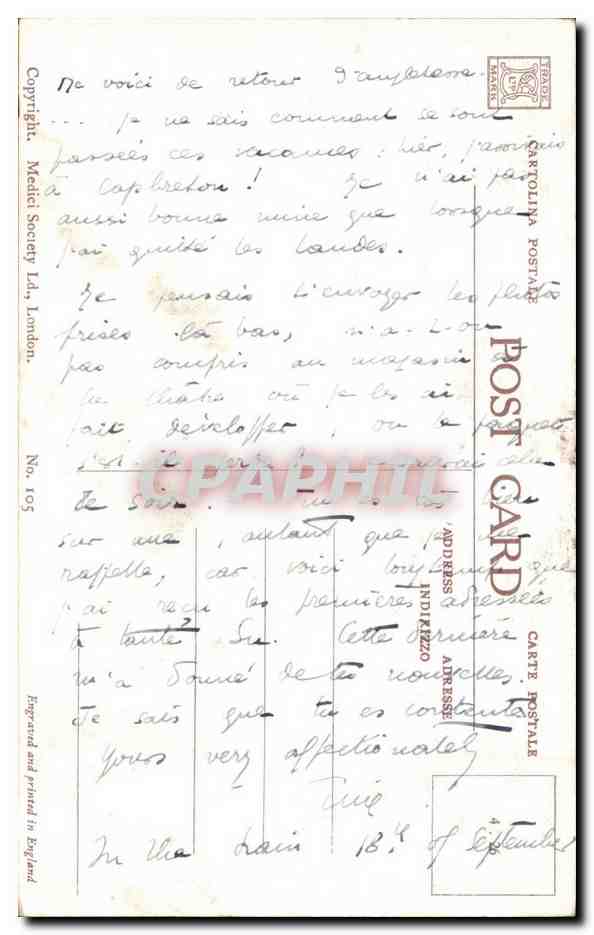 Me voici de retour d'angleterre.
... je ne sais comment se sont
passées ces vacances : hier, j'arrivais
à Capbreton ! Je n'ai pas
aussi bonne mine que lorsque
j'ai quitté les Landes.
Je pensais t'envoyer les photos
prises là bas, n'a-t-on
pas compris au magasin
où je les ai
fait développer, ou le paquet
s'est-il perdu
ce soir. Tu es
sur une, autant que je me
rappelle, car voici longtemps que
j'ai reçu les premières adressées
à tante Su. Cette dernière
m'a donné de tes nouvelles.
Je sais que tu es contente
Yours very affectionately
In the train 18 of September
TRADE
MARK
CARTOLINA POSTALE
POST CARD
CARTE POSTALE
ADDRESS
INDIRIZZO
ADRESSE
Copyright. Medici Society Ld., London. No. 105
Engraved and printed in England
CPAPHIL